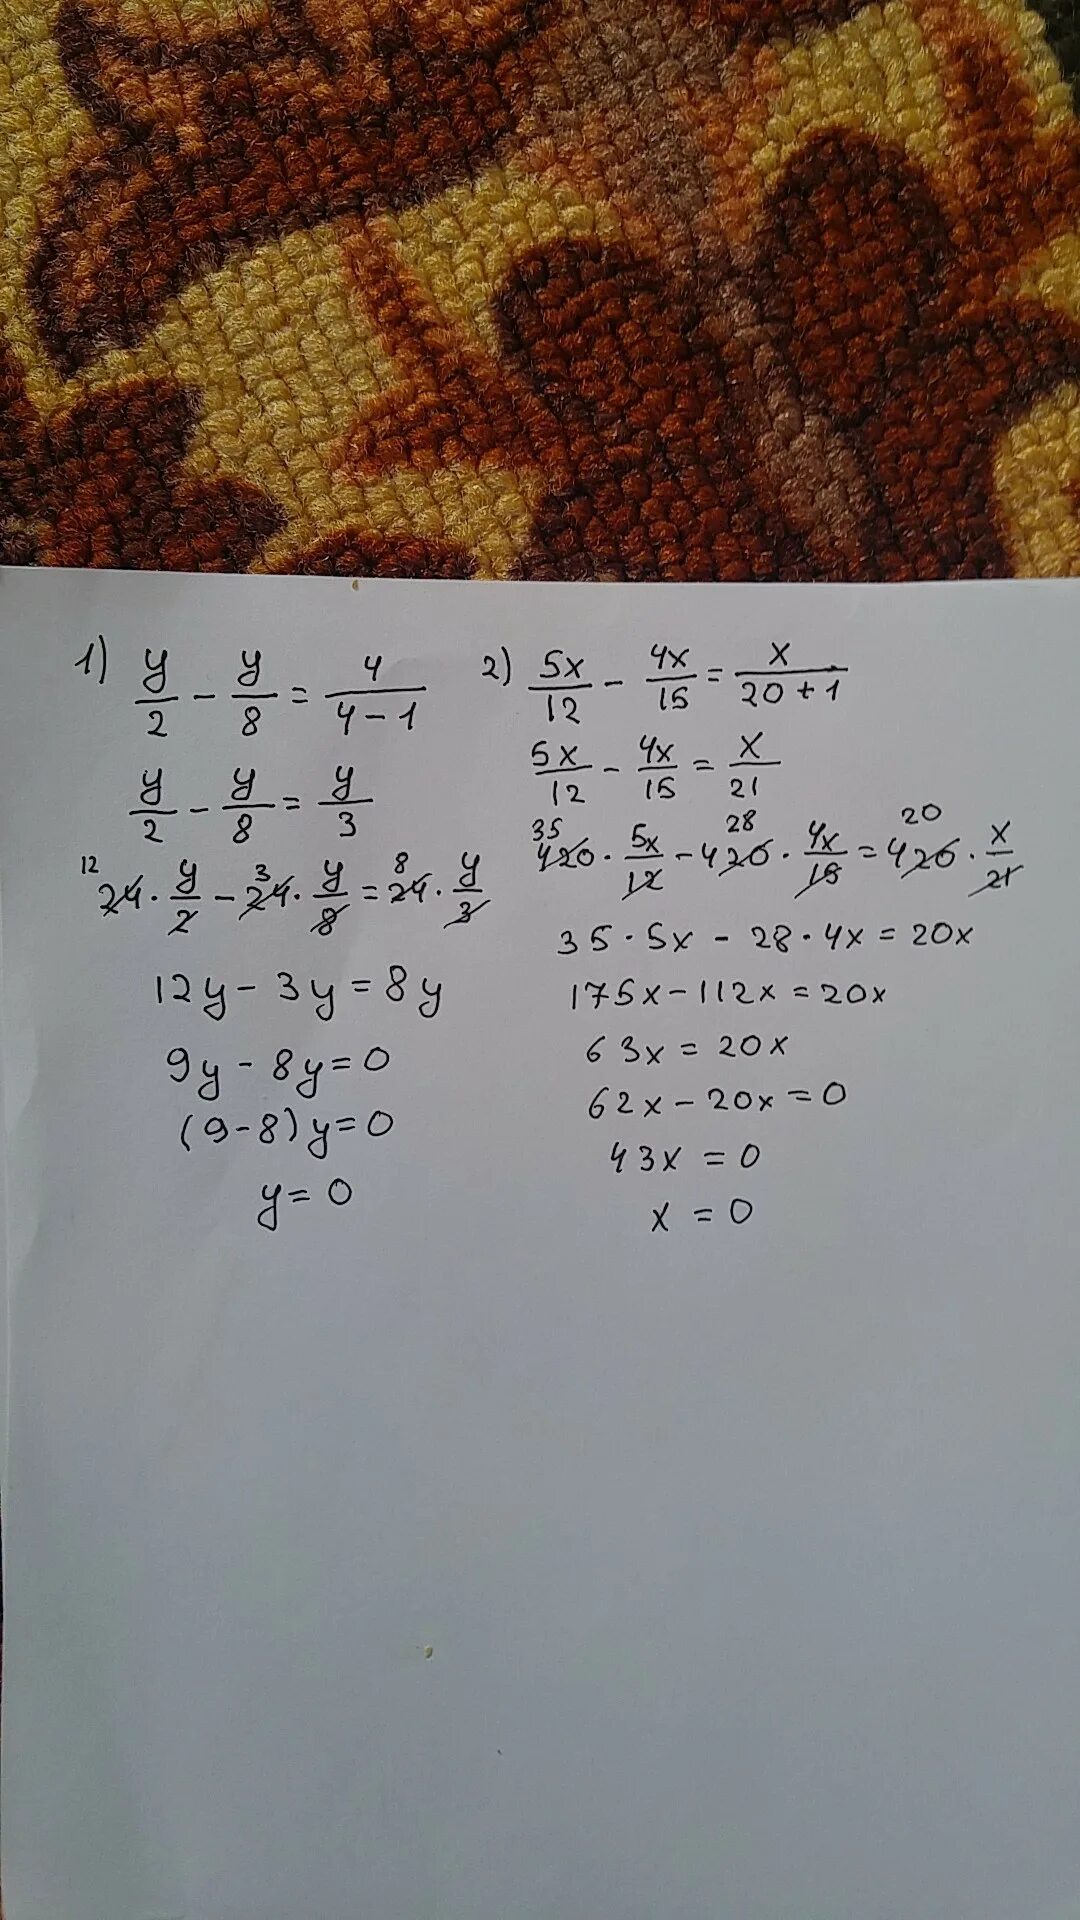 1) y/2 - y/8 = 4/(4-1)
y/2 - y/8 = y/3
12 3 8
24 · y/2 - 24 · y/8 = 24 · y/3
12y - 3y = 8y
9y - 8y = 0
(9-8)y = 0
y = 0
2) 5x/12 - 4x/15 = x/(20+1)
5x/12 - 4x/15 = x/21
35 28 20
420 · 5x/12 - 420 · 4x/15 = 420 · x/21
35 · 5x - 28 · 4x = 20x
175x - 112x = 20x
63x = 20x
62x - 20x = 0
43x = 0
x = 0